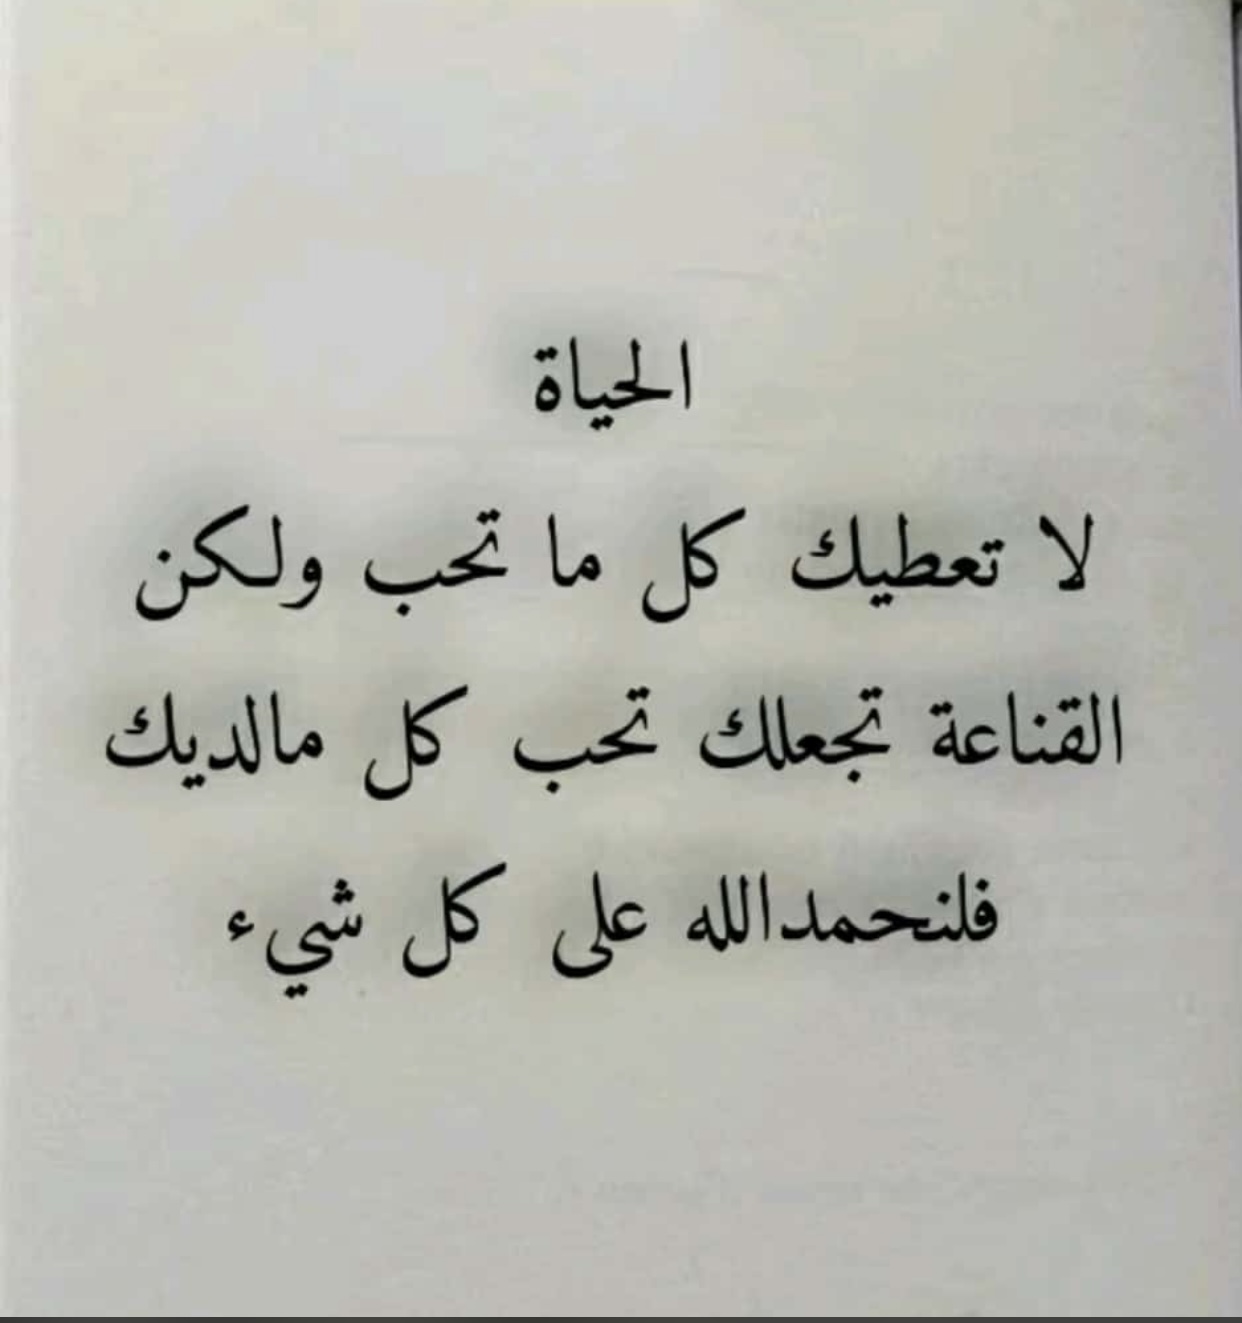 الحياة
لا تعطيك كل ما تحب ولكن
القناعة تجعلك تحب كل مالديك
فلنحمدالله على كل شيء